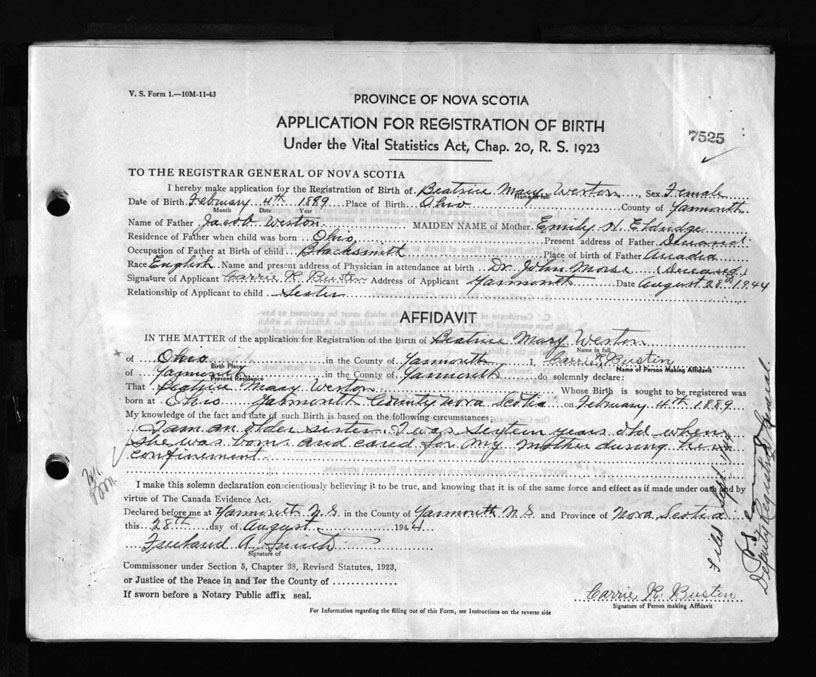 V. S. Form 1.—10M-11-43
PROVINCE OF NOVA SCOTIA
APPLICATION FOR REGISTRATION OF BIRTH
7525
Under the Vital Statistics Act, Chap. 20, R. S. 1923
TO THE REGISTRAR GENERAL OF NOVA SCOTIA
I hereby make application for the Registration of Birth of Beatrice Mary Weston, Sex Female
Date of Birth February 4th 1889 Place of Birth Ohio County of Yarmouth
Month Date Year
Name of Father Jacob Weston MAIDEN NAME of Mother Emily H. Eldridge
Residence of Father when child was born Ohio Present address of Father Deceased
Occupation of Father at Birth of child Blacksmith Place of birth of Father Arcadia
Race English Name and present address of Physician in attendance at birth Dr. John Morse (Deceased)
Signature of Applicant Carrie R. Bustin Address of Applicant Yarmouth Date August 28th 1944
Relationship of Applicant to child Sister
AFFIDAVIT
IN THE MATTER of the application for Registration of the Birth of Beatrice Mary Weston
Name in full
of Ohio in the County of Yarmouth I, Carrie R Bustin
Birth Place Name of Person Making Affidavit
of Yarmouth in the County of Yarmouth do solemnly declare:
Present Residence
That Beatrice Mary Weston Whose Birth is sought to be registered was
born at Ohio Yarmouth County Nova Scotia on February 4th 1889
My knowledge of the fact and date of such Birth is based on the following circumstances:
I am an older sister. I was sixteen years old when
she was born and cared for my mother during her
confinement
I make this solemn declaration conscientiously believing it to be true, and knowing that it is of the same force and effect as if made under oath and by
virtue of The Canada Evidence Act.
Declared before me at Yarmouth N.S. in the County of Yarmouth N S and Province of Nova Scotia
this 28th day of August 1944
Freeland A. Smith
Signature of
Commissioner under Section 5, Chapter 38, Revised Statutes, 1923,
or Justice of the Peace in and for the County of
If sworn before a Notary Public affix seal.
Carrie R. Bustin
Signature of Person making Affidavit
For Information regarding the filling out of this Form, see Instructions on the reverse side
Filed
Deputy Registrar General